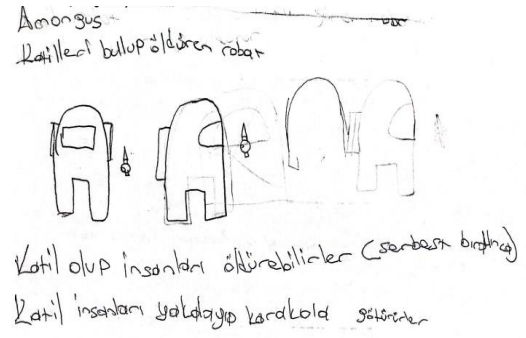 Amongus
Katilleri bulup öldüren robar
Katil olup insanları öldürebilirler (serbest bıraktınca)
Katil insanları yakalayıp karakola götürürler